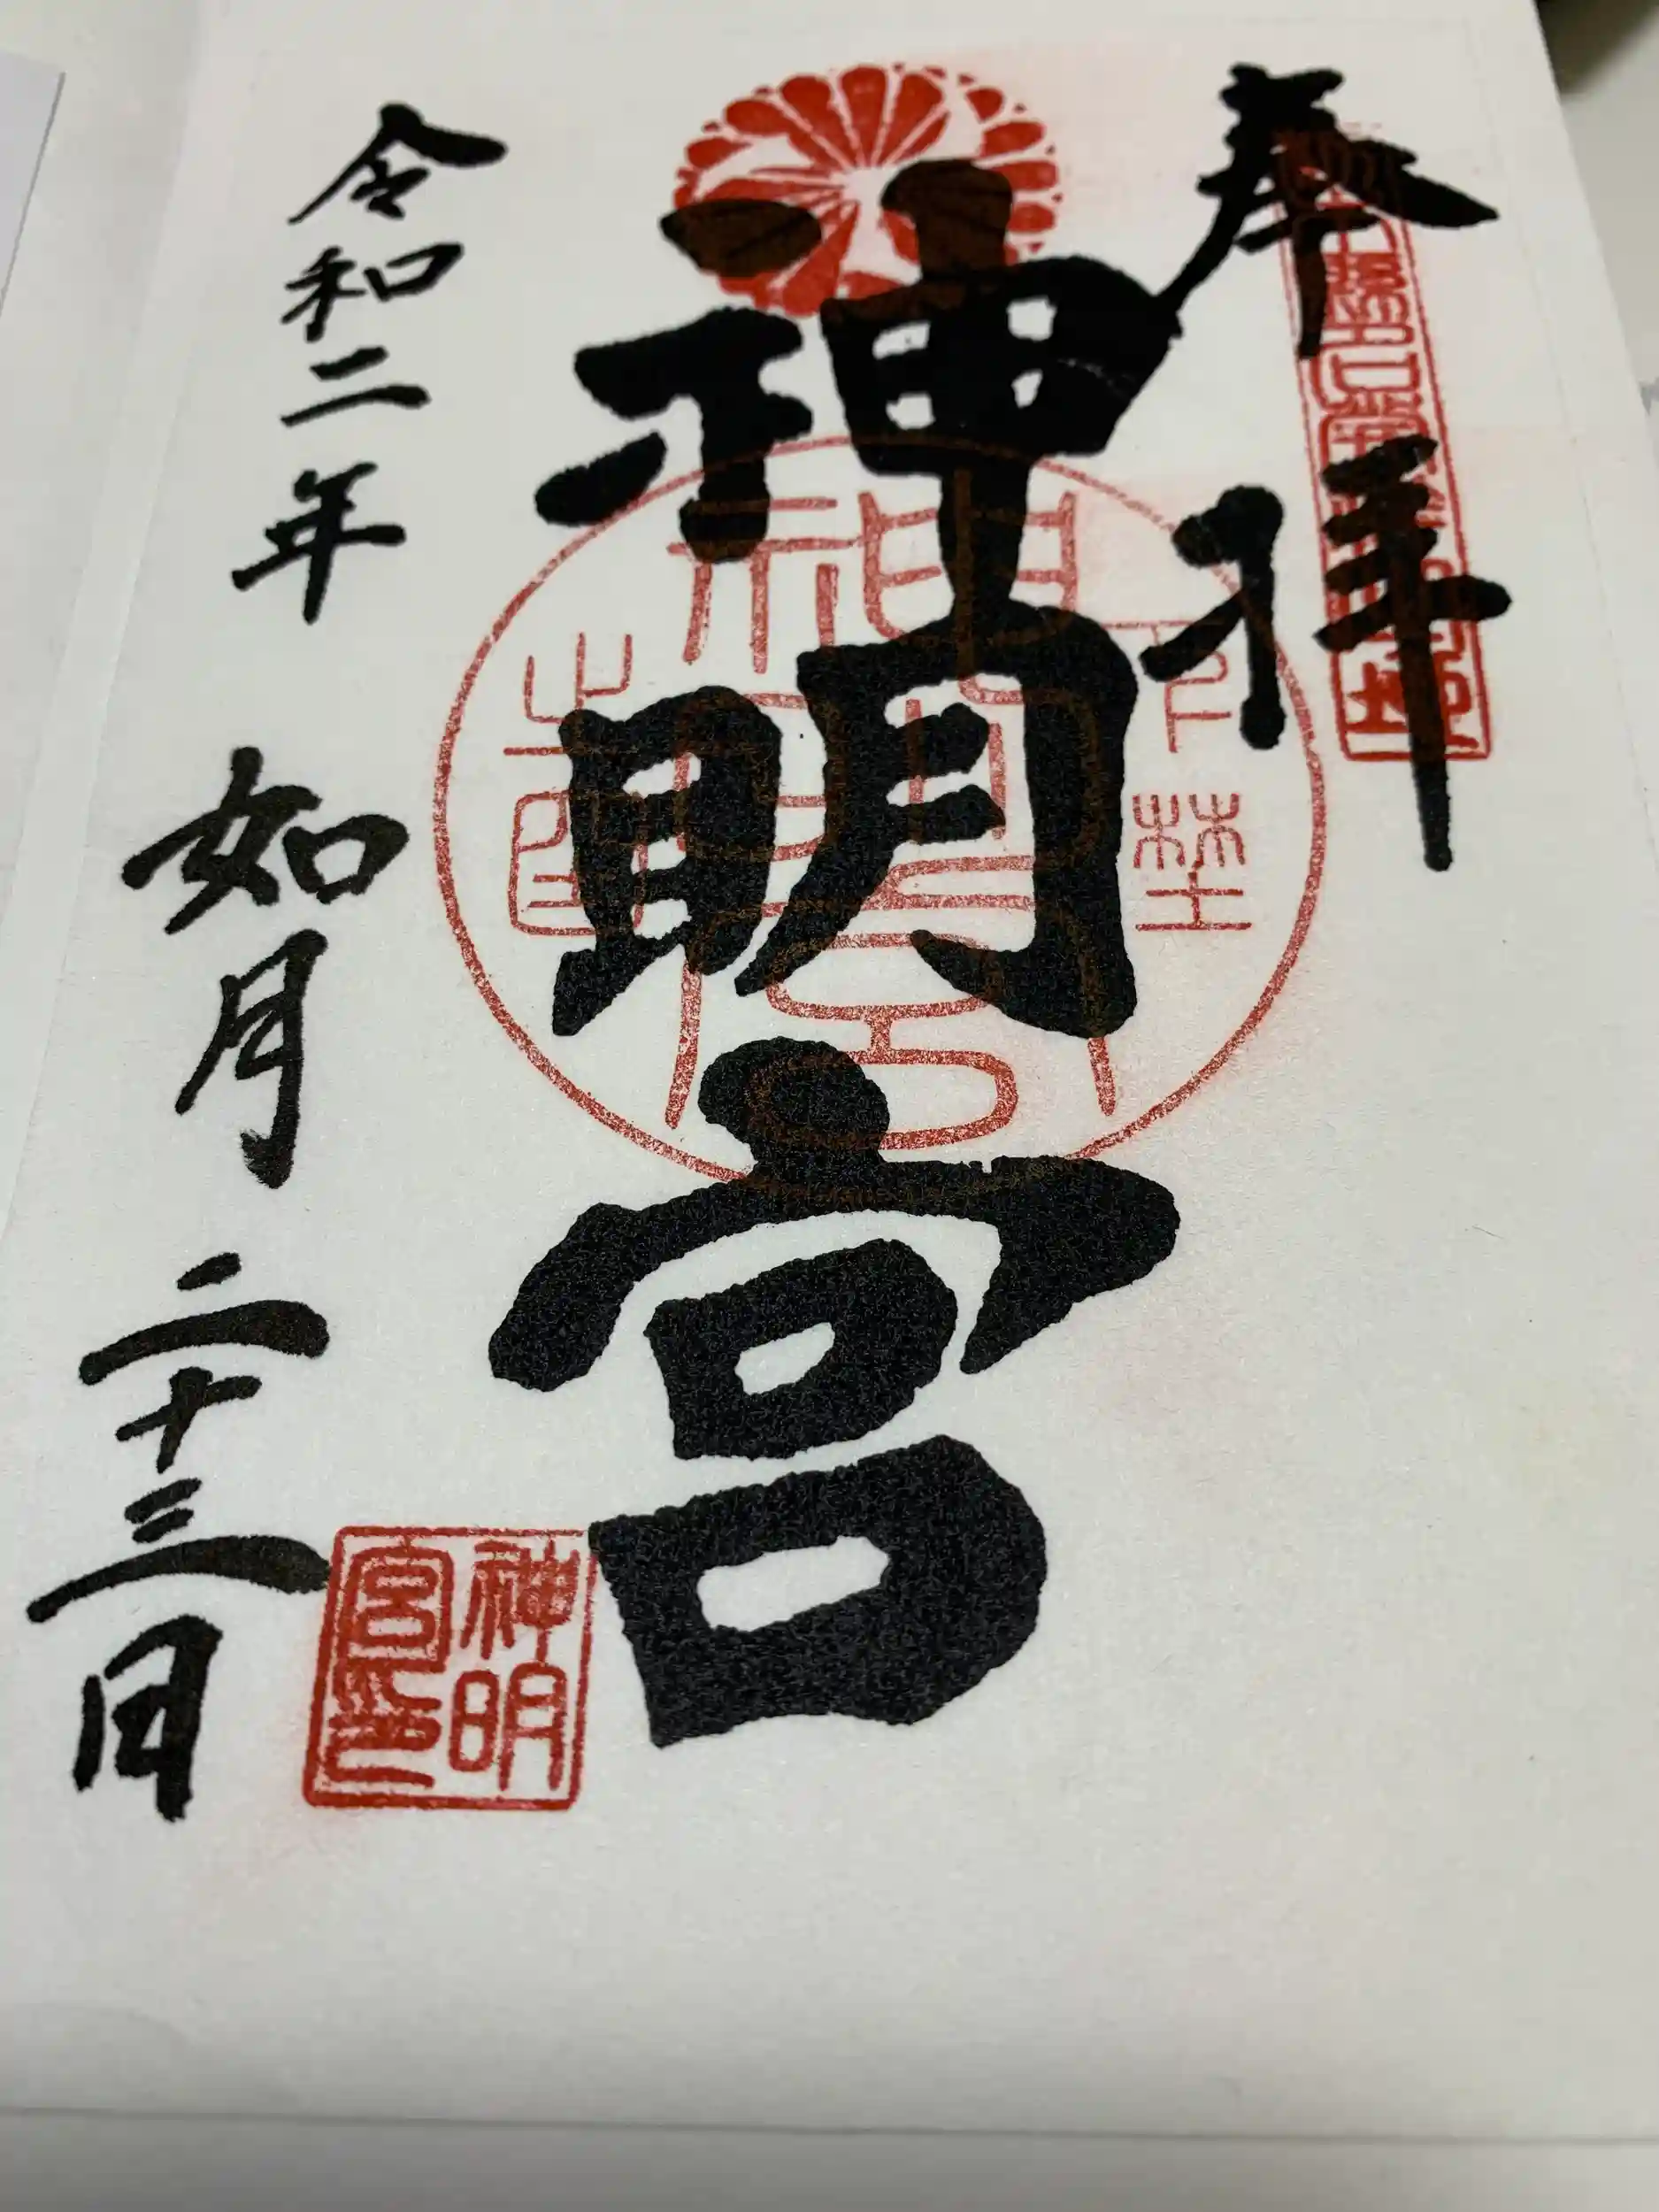 奉拝
神明宮
下埜
之酉
神明宮
神明
宮印
令和二年 如月 二十三日